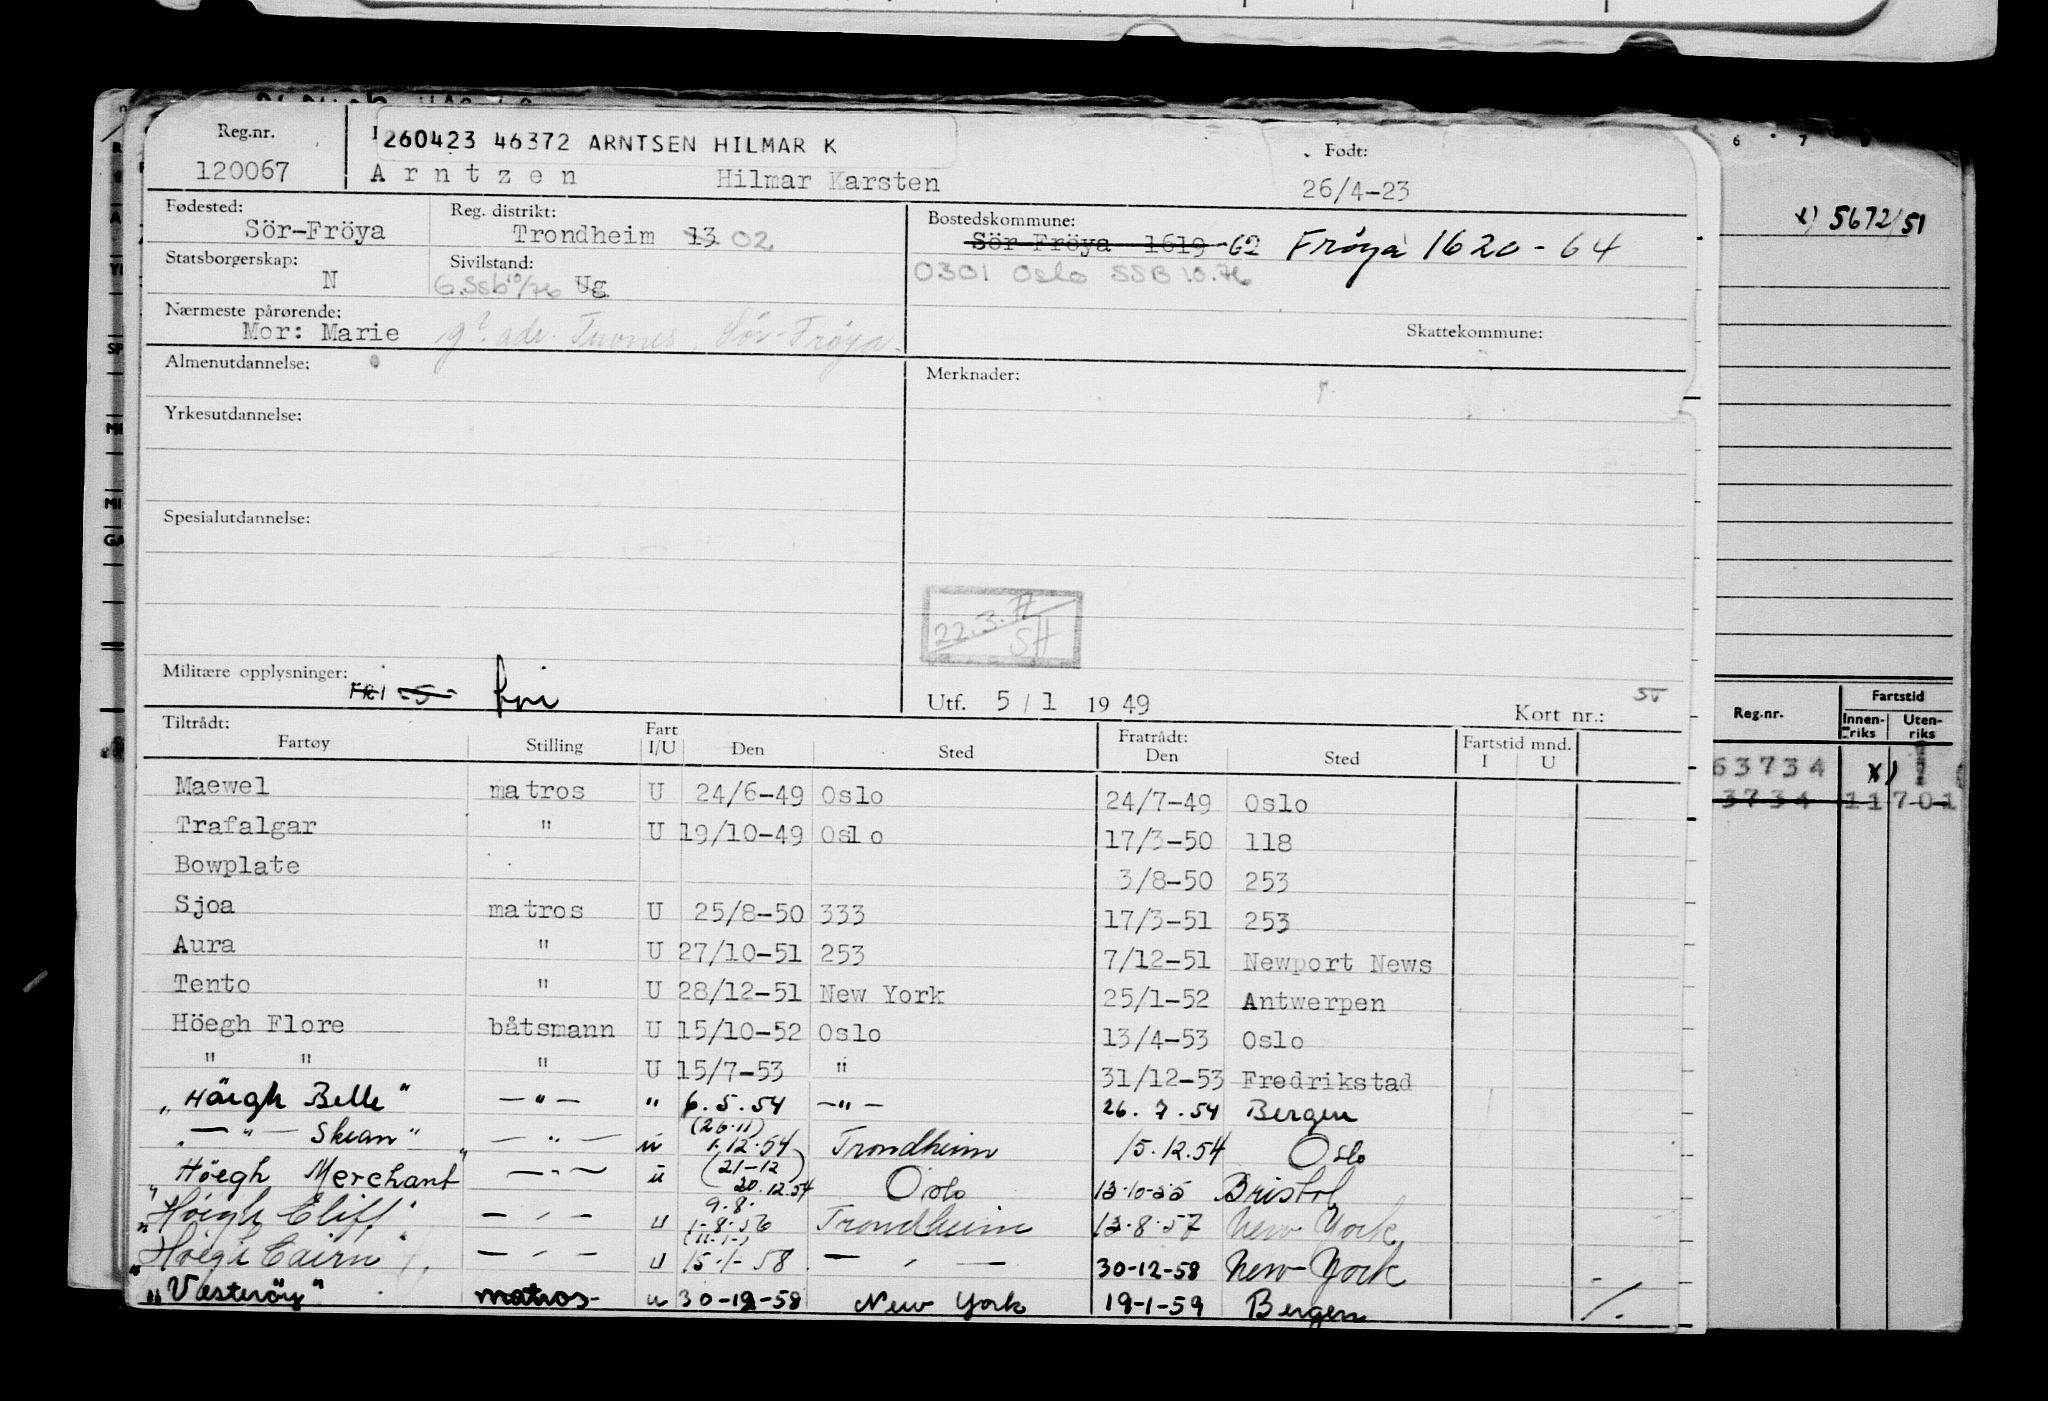 Reg.nr. 260423 46372 ARNTSEN HILMAR K Født:
120067 Arntzen Hilmar Karsten 26/4-23
Fødested: Sör-Fröya Reg. distrikt: Trondheim 13 02 Bostedskommune: Sör-Fröya 1619-62 Frøya 1620-64
Statsborgerskap: N Sivilstand: G.SSb10/76 Ug 0301 Oslo SSB 10.76
Nærmeste pårørende: Mor: Marie adr. Sør-Frøya Skattekommune:
Almenutdannelse: Merknader:
Yrkesutdannelse:
Spesialutdannelse:
22.3.77 SH
Militære opplysninger: FRI -5- fri Utf. 5/1 1949 Kort nr.:
Tiltrådt: Fratrådt:
Fartøy Stilling Fart I/U Den Sted Den Sted Fartstid mnd. I U
Maewel matros U 24/6-49 Oslo 24/7-49 Oslo
Trafalgar " U 19/10-49 Oslo 17/3-50 118
Bowplate 3/8-50 253
Sjoa matros U 25/8-50 333 17/3-51 253
Aura " U 27/10-51 253 7/12-51 Newport News
Tento " U 28/12-51 New York 25/1-52 Antwerpen
Höegh Flore båtsmann U 15/10-52 Oslo 13/4-53 Oslo
" " " U 15/7-53 " 31/12-53 Fredrikstad
"Höegh Belle" -"- " 6.5.54 -"- 26.7.54 Bergen
"-"- Skean" -"- u (26.11) 1.12.54 Trondheim 15.12.54 Oslo
"Höegh Merchant" -"- u (21-12) 20.12.54 Oslo 13.10.55 Bristol
"Höegh Cliff" -"- u 9.8. 1-8.56 Trondheim 13.8.57 New York
"Höegh Cairn" -"- u (11.1-) 15.1-58 -"- 30-12-58 New York
"Vesteröy" matros- u 30-12-58 New York 19-1-59 Bergen
6 7
x) 5672/51
Reg.nr. Fartstid
Innenriks Uten-riks
63734 x) 1
3734 11 701